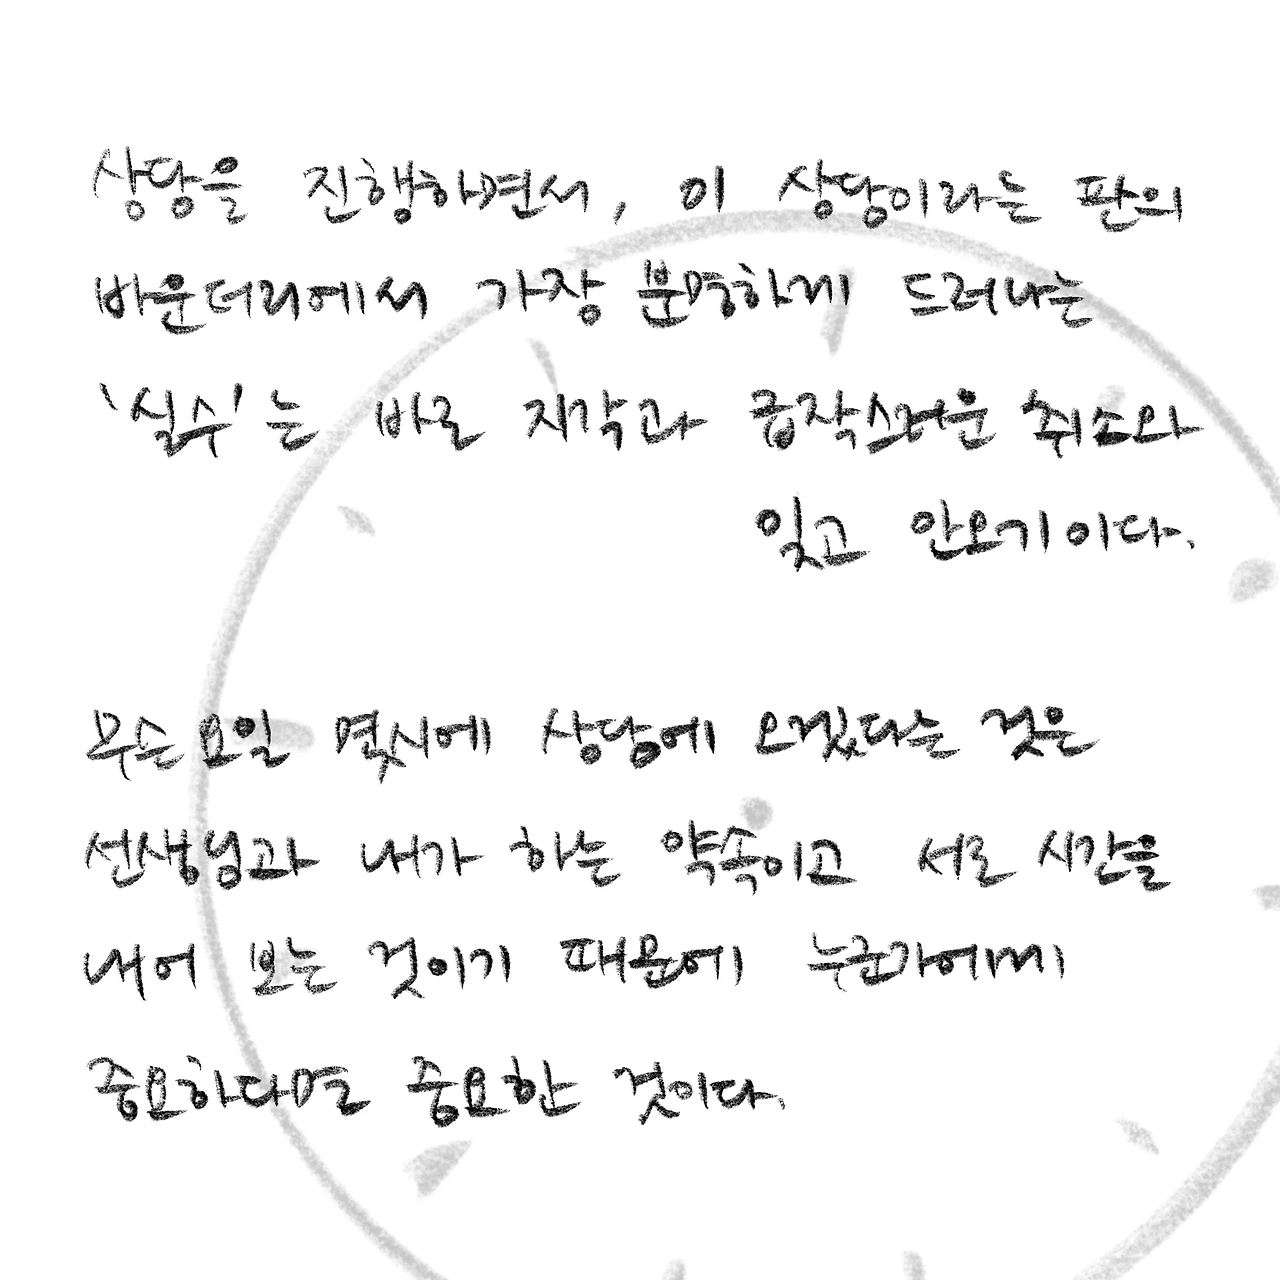 상담을 진행하면서, 이 상담이라는 판의
바운더리에서 가장 분명하게 드러나는
'실수'는 바로 지각과 급작스러운 취소와
잊고 안오기이다.
무슨 요일 몇시에 상담에 오겠다는 것은
선생님과 내가 하는 약속이고 서로 시간을
내어 보는 것이기 때문에 누군가에게
중요하다면 중요한 것이다.